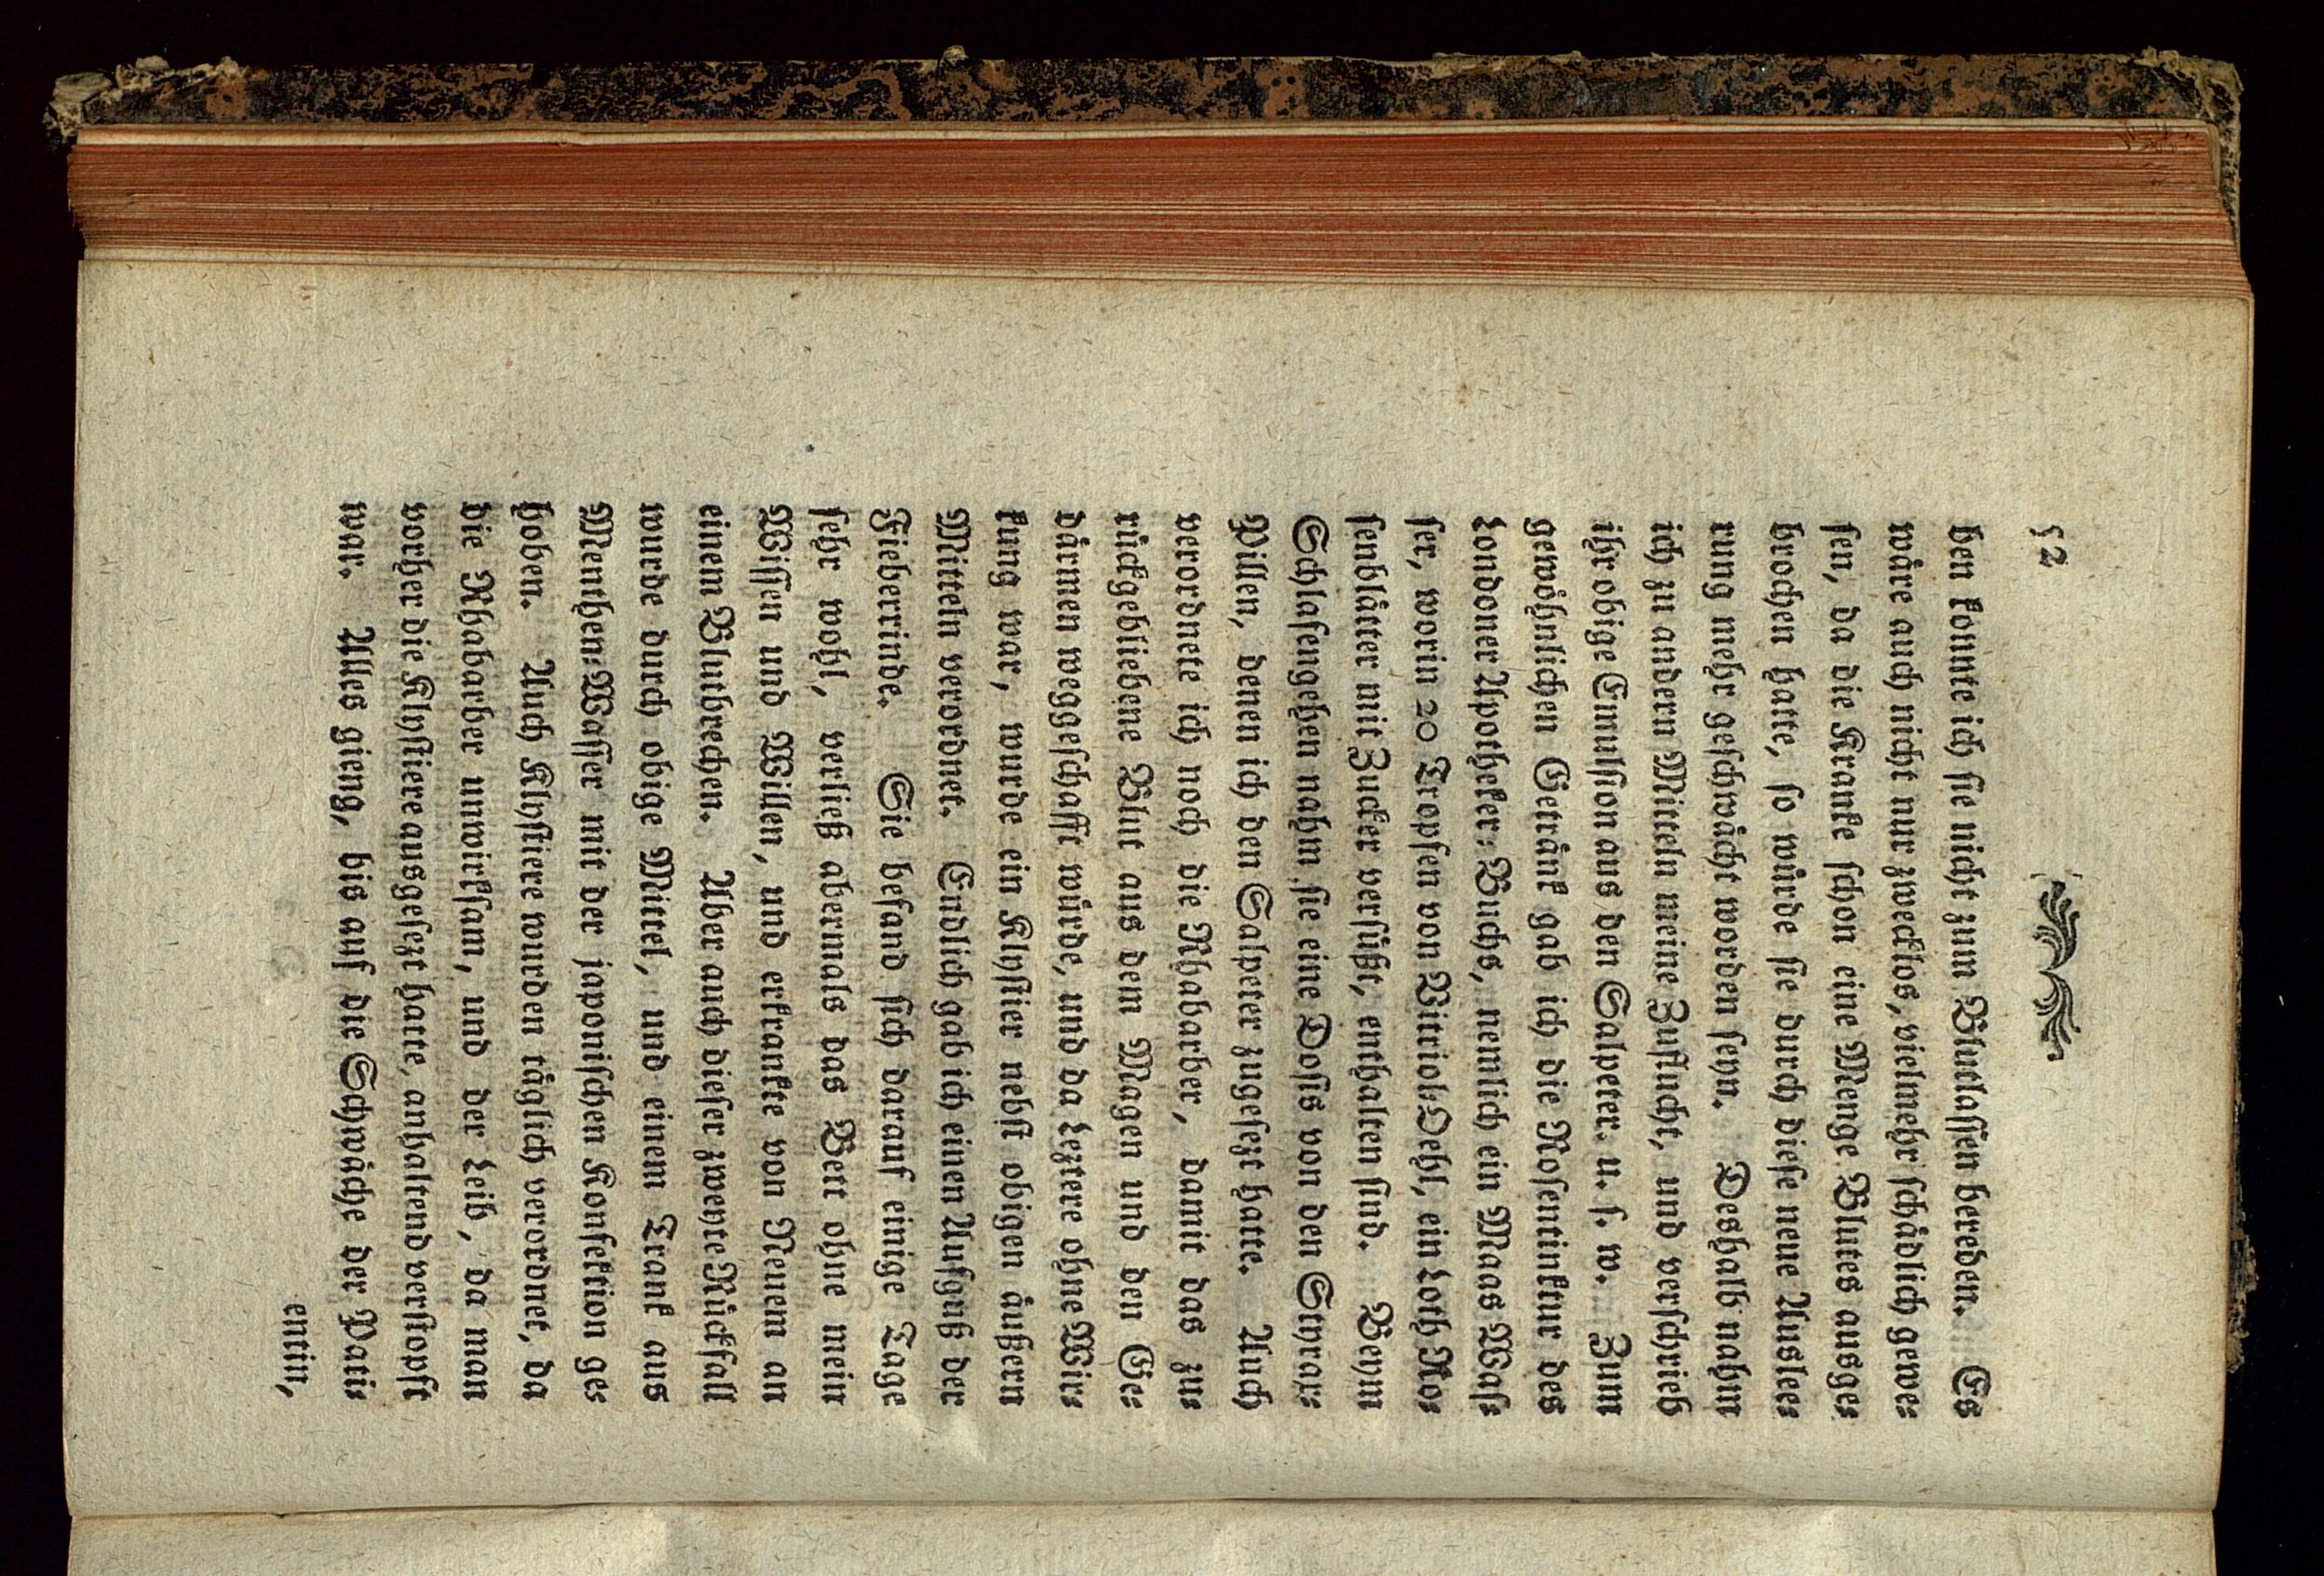 52
ben konnte ich sie nicht zum Blutlassen bereden. Es
wäre auch nicht nur zwecklos, vielmehr schädlich gewe-
sen, da die Kranke schon eine Menge Blutes ausge-
brochen hatte, so würde sie durch diese neue Auslee-
rung mehr geschwächt worden seyn. Deshalb nahm
ich zu andern Mitteln meine Zuflucht, und verschrieb
ihr obige Emulsion aus den Salpeter. u. s. w. Zum
gewöhnlichen Getränk gab ich die Rosentinktur des
Londoner Apotheker-Buchs, nemlich ein Maas Was-
ser, worin 20 Tropfen von Vitriol-Oehl, ein Loth Ro-
senblätter mit Zucker versüßt, enthalten sind. Beym
Schlafengehen nahm sie eine Dosis von den Styrax-
Pillen, denen ich den Salpeter zugesezt hatte. Auch
verordnete ich noch die Rhabarber, damit das zu-
rückgebliebene Blut aus dem Magen und den Ge-
därmen weggeschafft würde, und da leztere ohne Wir-
kung war, wurde ein Klystier nebst obigen äußern
Mitteln verordnet. Endlich gab ich einen Aufguß der
Fieberrinde. Sie befand sich darauf einige Tage
sehr wohl, verließ abermals das Bett ohne mein
Wissen und Willen, und erkrankte von Neuem an
einem Blutbrechen. Aber auch dieser zweyte Rückfall
wurde durch obige Mittel, und einem Trank aus
Menthen-Wasser mit der japonischen Konfektion ge-
hoben. Auch Klystiere wurden täglich verordnet, da
die Rhabarber unwirksam, und der Leib, da man
vorher die Klystiere ausgesezt hatte, anhaltend verstopft
war. Alles gieng, bis auf die Schwäche der Pati-
entin,